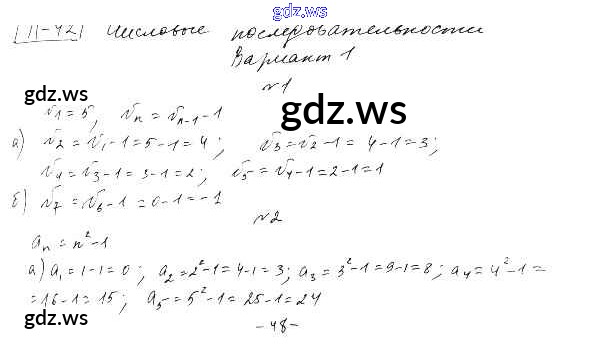 gdz.ws
П-42 Числовые последовательности
Вариант 1
gdz.ws
№1
v₁ = 5, vₙ = vₙ₋₁ - 1
gdz.ws
а) v₂ = v₁ - 1 = 5 - 1 = 4; v₃ = v₂ - 1 = 4 - 1 = 3;
v₄ = v₃ - 1 = 3 - 1 = 2; v₅ = v₄ - 1 = 2 - 1 = 1
б) v₇ = v₆ - 1 = 0 - 1 = -1
№2
aₙ = n² - 1
а) a₁ = 1 - 1 = 0; a₂ = 2² - 1 = 4 - 1 = 3; a₃ = 3² - 1 = 9 - 1 = 8; a₄ = 4² - 1 =
= 16 - 1 = 15; a₅ = 5² - 1 = 25 - 1 = 24
gdz.ws
gdz.ws
- 48 -